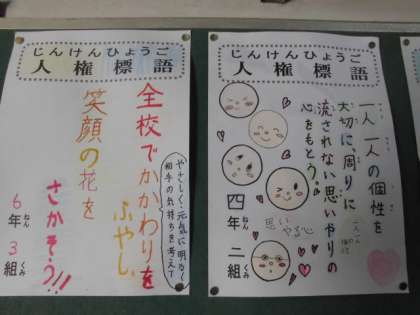 じんけんひょうご
人権標語
全校でかかわりを
ふやし
笑顔の花を
さかそう!!
やさしく元気に明るく
相手の気持ちを考えて
6年3組
ねん
くみ
じんけんひょうご
人権標語
一人一人の個性を
大切に、周りに
流されない思いやりの
心をもとう。
思い
やる心
四年二組
ねん
くみ